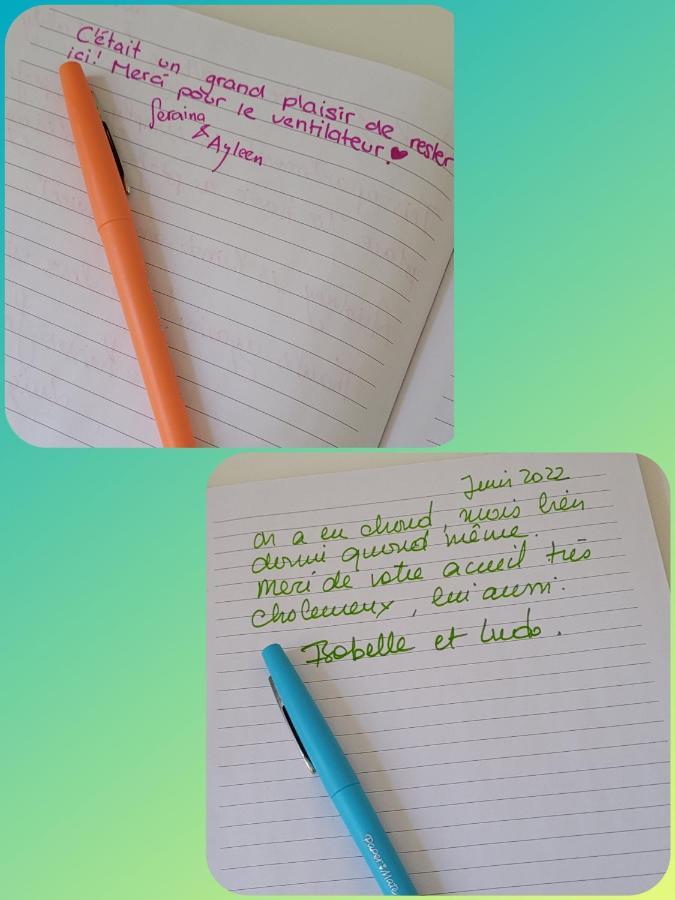 C'était un grand plaisir de rester
ici! Merci pour le ventilateur. ♥
Seraina
&
Ayleen
Juin 2022
on a eu chaud, mais bien
dormi quand même.
Merci de votre acueil très
chaleureux, lui aussi.
Isabelle et Ludo.
Paper Mate